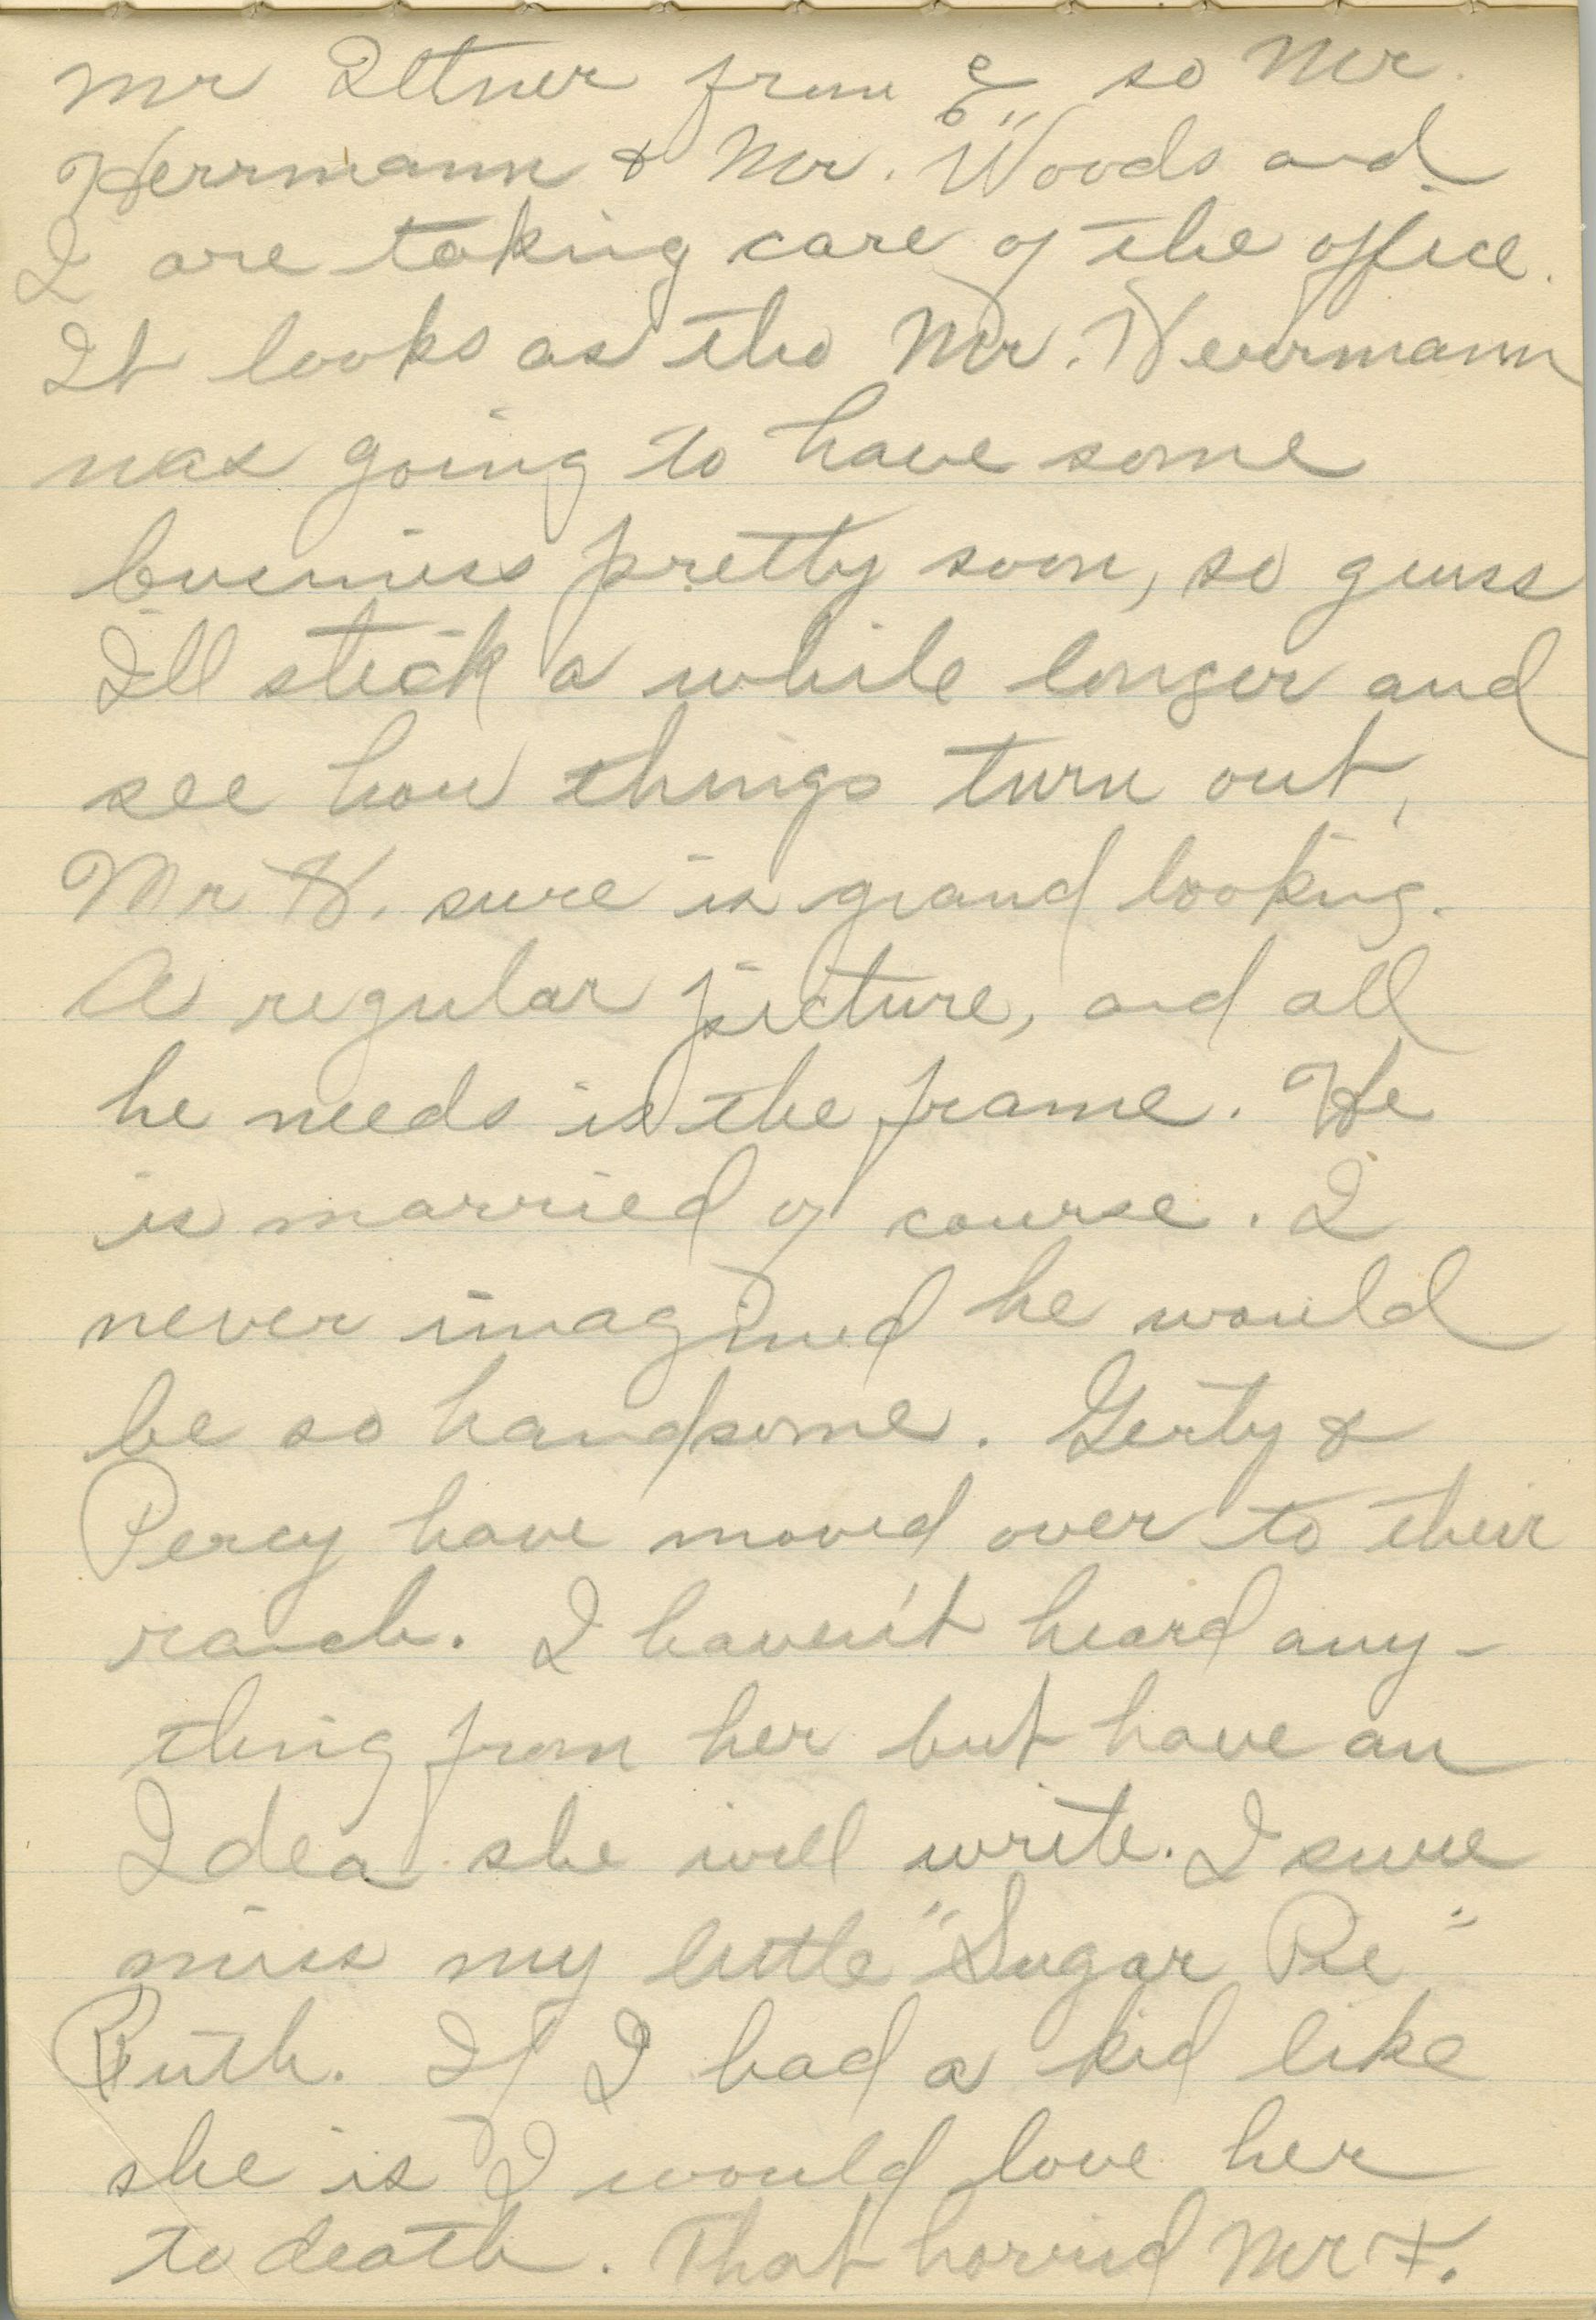 Mr Ittner from so Mr.
Herrmann & Mr. Woods and
I are taking care of the office.
It looks as tho Mr. Herrmann
was going to have some
business pretty soon, so guess
I'll stick a while longer and
see how things turn out,
Mr H. sure is grand looking.
A regular picture, and all
he needs is the frame. He
is married of course. I
never imagined he would
be so handsome. Gerty &
Percy have moved over to their
ranch. I haven't heard any-
thing from her but have an
Idea she will write. I sure
miss my little "Sugar Pie"
Ruth. If I had a kid like
she is I would love her
to death. That horrid Mr F.